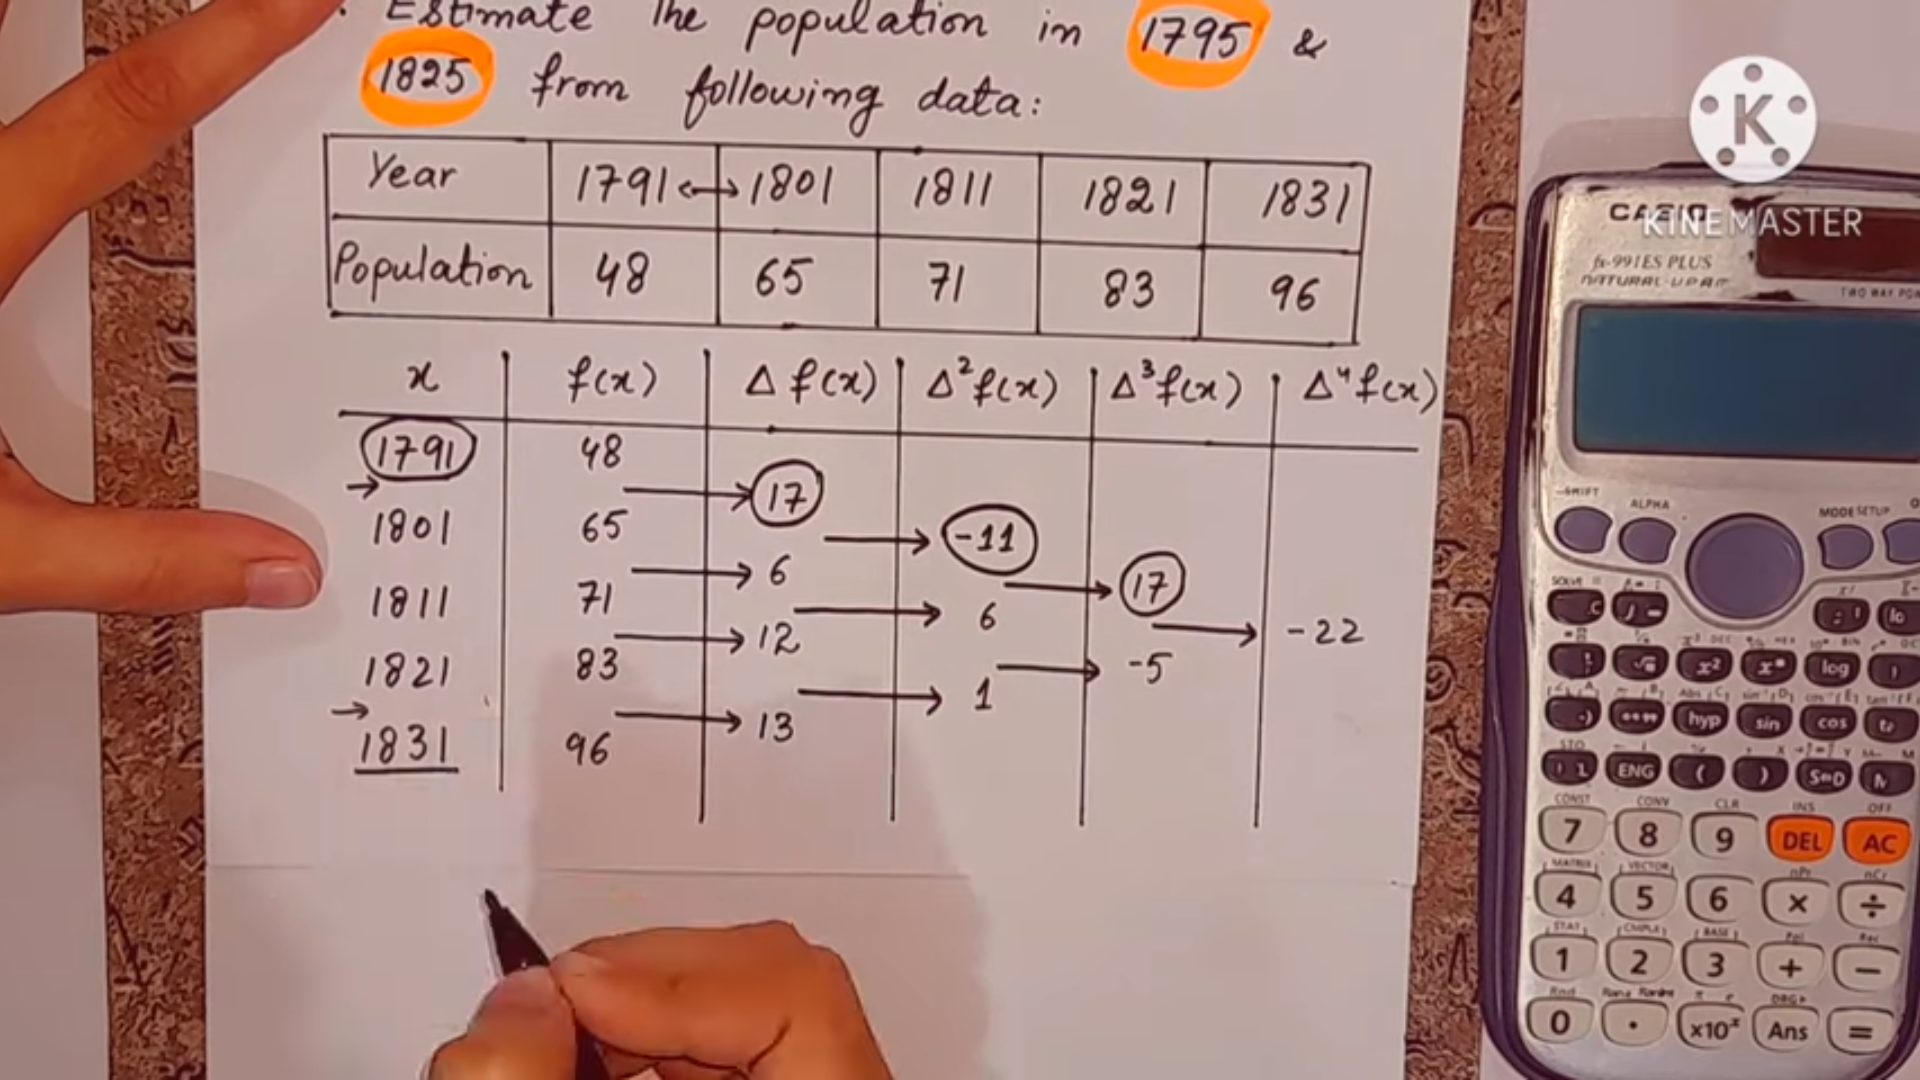 Estimate the population in 1795 &
1825 from following data:
Year 1791 ↔ 1801 1811 1821 1831
Population 48 65 71 83 96
x f(x) Δ f(x) Δ²f(x) Δ³f(x) Δ⁴f(x)
1791 48
→ 17
→ -11
1801 65
→ 6
→ 17
1811 71
→ 6
→ -22
→ 12
1821 83
→ -5
→ 1
→ 13
1831 96
K
KINEMASTER
CASIO
fx-991ES PLUS
NATURAL-V.P.A.M.
TWO WAY POWER
SHIFT ALPHA MODE SETUP
SOLVE
log
hyp sin cos
STO
ENG ( ) S⇔D
CONST CONV CLR INS OFF
7 8 9 DEL AC
MATRIX VECTOR nPr nCr
4 5 6 × ÷
STAT CMPLX BASE Pol Rec
1 2 3 + −
Rnd Ran# RanInt π e DRG▸
0 . ×10ˣ Ans =